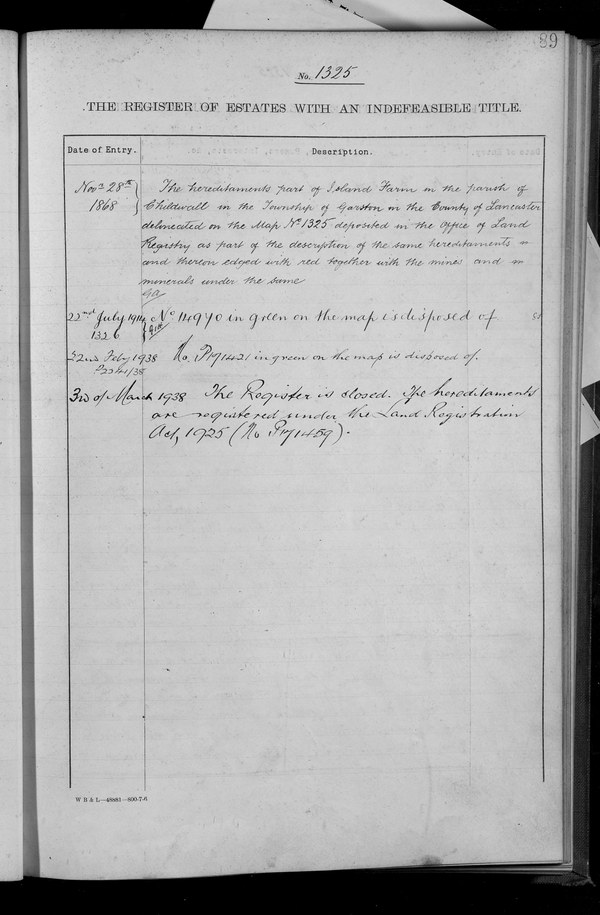 89
No. 1325
THE REGISTER OF ESTATES WITH AN INDEFEASIBLE TITLE.
Date of Entry. Description.
Novr 28th 1868 The hereditaments part of Island Farm in the parish of
Childwall in the Township of Garston in the County of Lancaster
delineated on the Map No 1325 deposited in the Office of Land
Registry as part of the description of the same hereditaments
and thereon edged with red together with the mines and
minerals under the same
22nd July 1914 No 14970 in green on the map is disposed of
1326
22nd Feby 1938 No. P171421 in green on the map is disposed of.
3rd of March 1938 The Register is closed. The hereditaments
are registered under the Land Registration
Act, 1925 (No P171459).
W B & L—48881—800-7-6